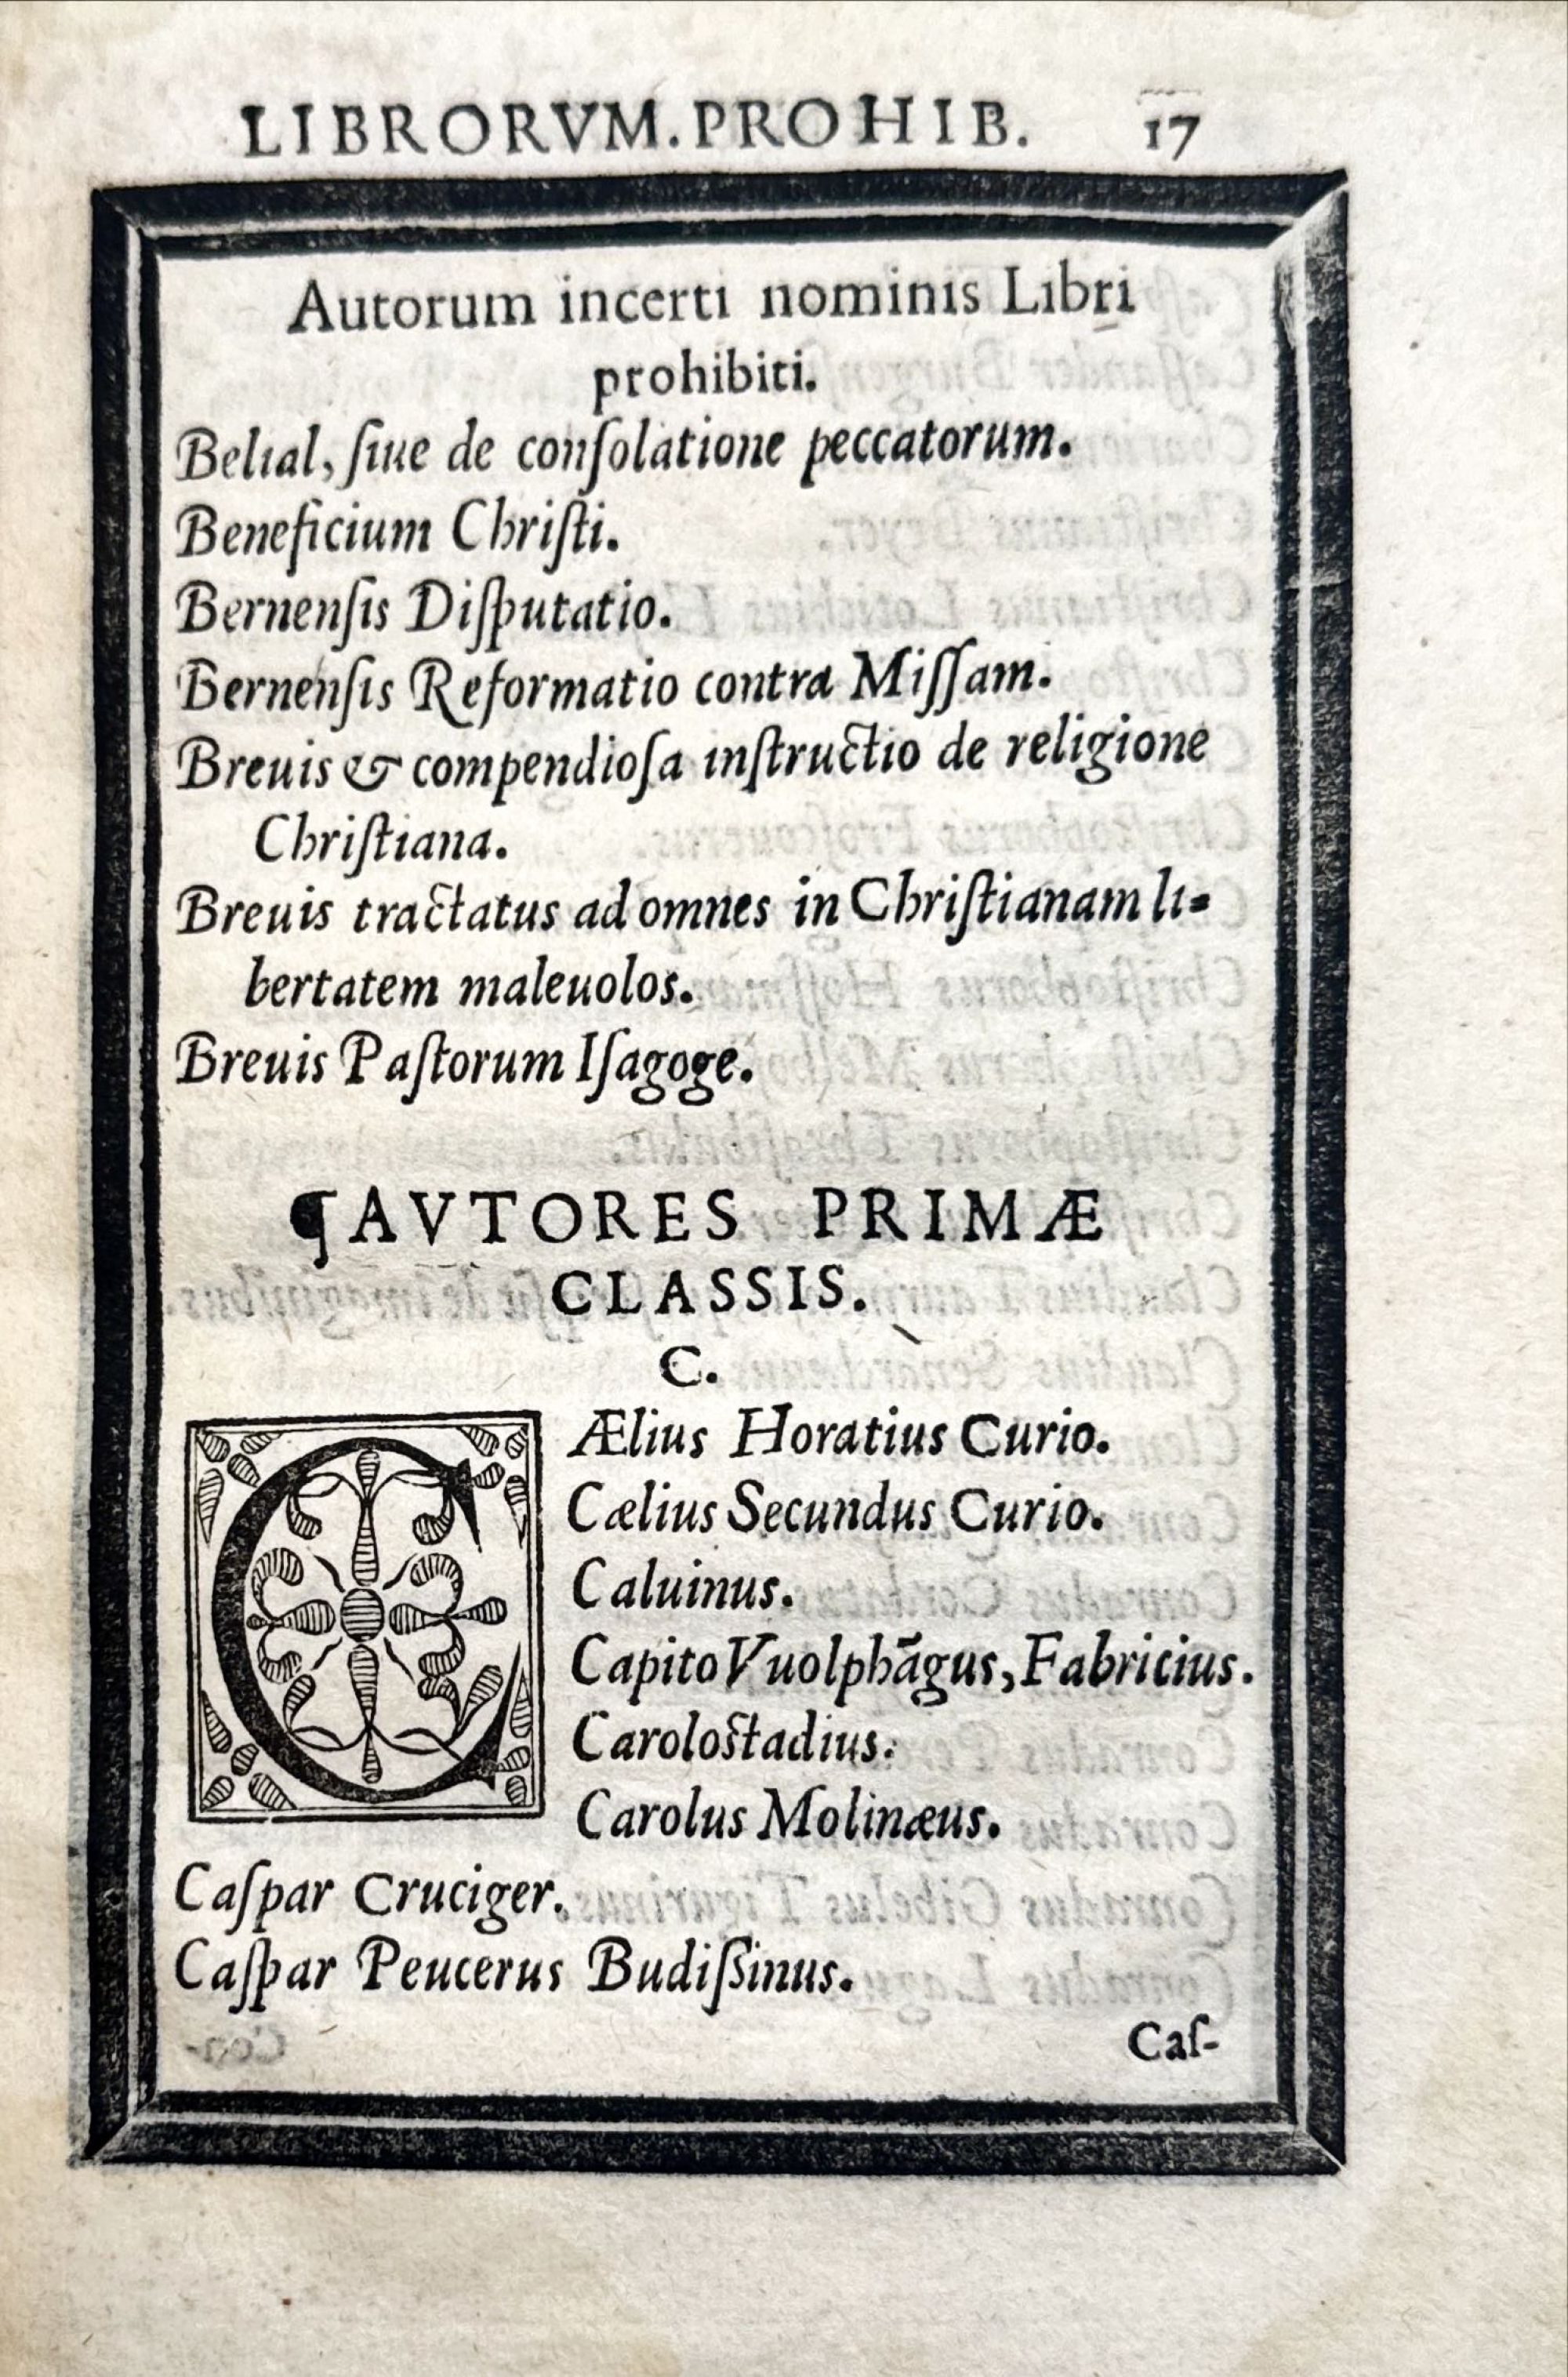 LIBRORVM.PROHIB. 17
Autorum incerti nominis Libri
prohibiti.
Belial, ſiue de conſolatione peccatorum.
Beneficium Chriſti.
Bernenſis Diſputatio.
Bernenſis Reformatio contra Miſſam.
Breuis & compendioſa inſtructio de religione
Chriſtiana.
Breuis tractatus ad omnes in Chriſtianam li-
bertatem maleuolos.
Breuis Paſtorum Iſagoge.
¶AVTORES PRIMÆ
CLASSIS.
C.
CÆlius Horatius Curio.
Cælius Secundus Curio.
Caluinus.
Capito Vuolphāgus, Fabricius.
Caroloſtadius.
Carolus Molinæus.
Caſpar Cruciger.
Caſpar Peucerus Budiſsinus.
Caſ-